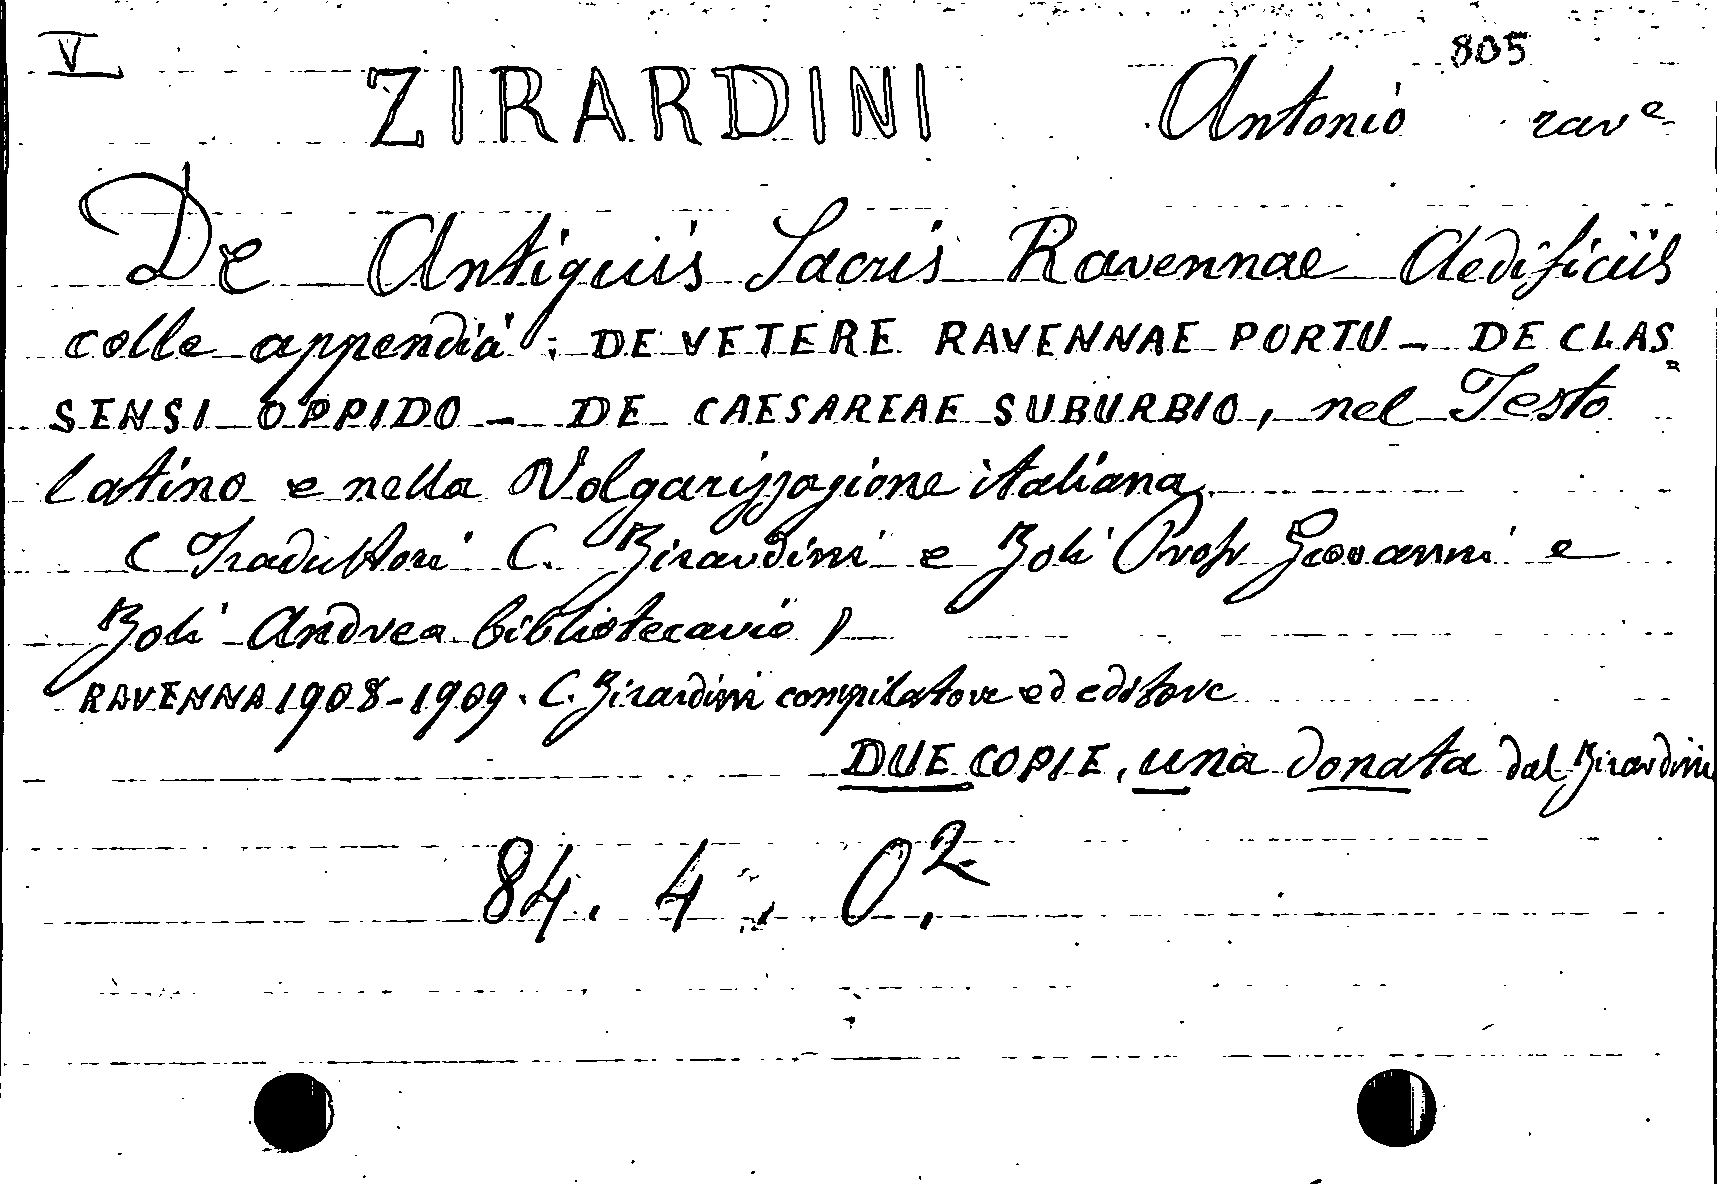 V
805
ZIRARDINI Antonio rav^e
De Antiquis Sacris Ravennae Aedificiis
colle appendici: DE VETERE RAVENNAE PORTU - DE CLAS=
SENSI OPPIDO - DE CAESAREAE SUBURBIO, nel Testo
latino e nella Volgarizzazione italiana
(Traduttori C. Zirardini e Zoli Profr Giovanni e
Zoli Andrea bibliotecario)
RAVENNA 1908-1909. C. Zirardini compilatore ed editore
DUE COPIE, una donata dal Zirardini
84. 4. O.²